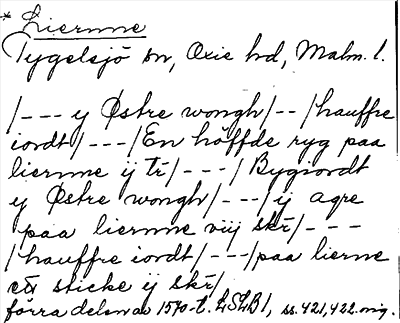 * Liernne
Tygelsjö sn, Oxie hd, Malm. l.
/--- y Østre wongh/--/hauffre
iordt/---/En höffde ryg paa
liernne ij tr/---/Bygiordt
y Østre wongh/---/ij agre
paa liernne viij skr/---
/hauffre iordt/---/paa lierne
ett sticke ij skr/
förra delen av 1570-t. LSLB1, ss. 421, 422. orig.